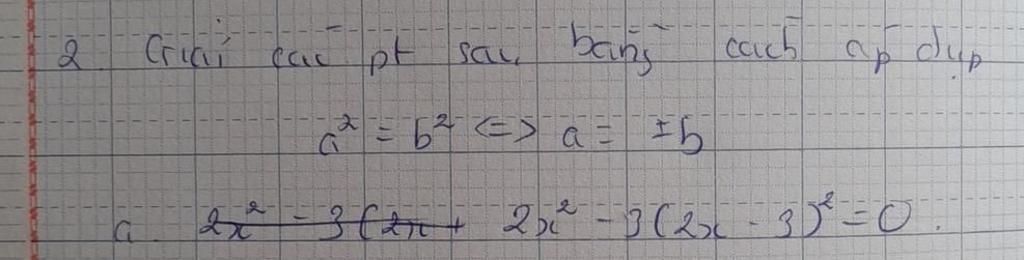 2. Giải các pt sau bằng cách áp dụp
a² = b² <=> a = ±b
a. ~~2x² - 3(2x +~~ 2x² - 3(2x - 3)² = 0.